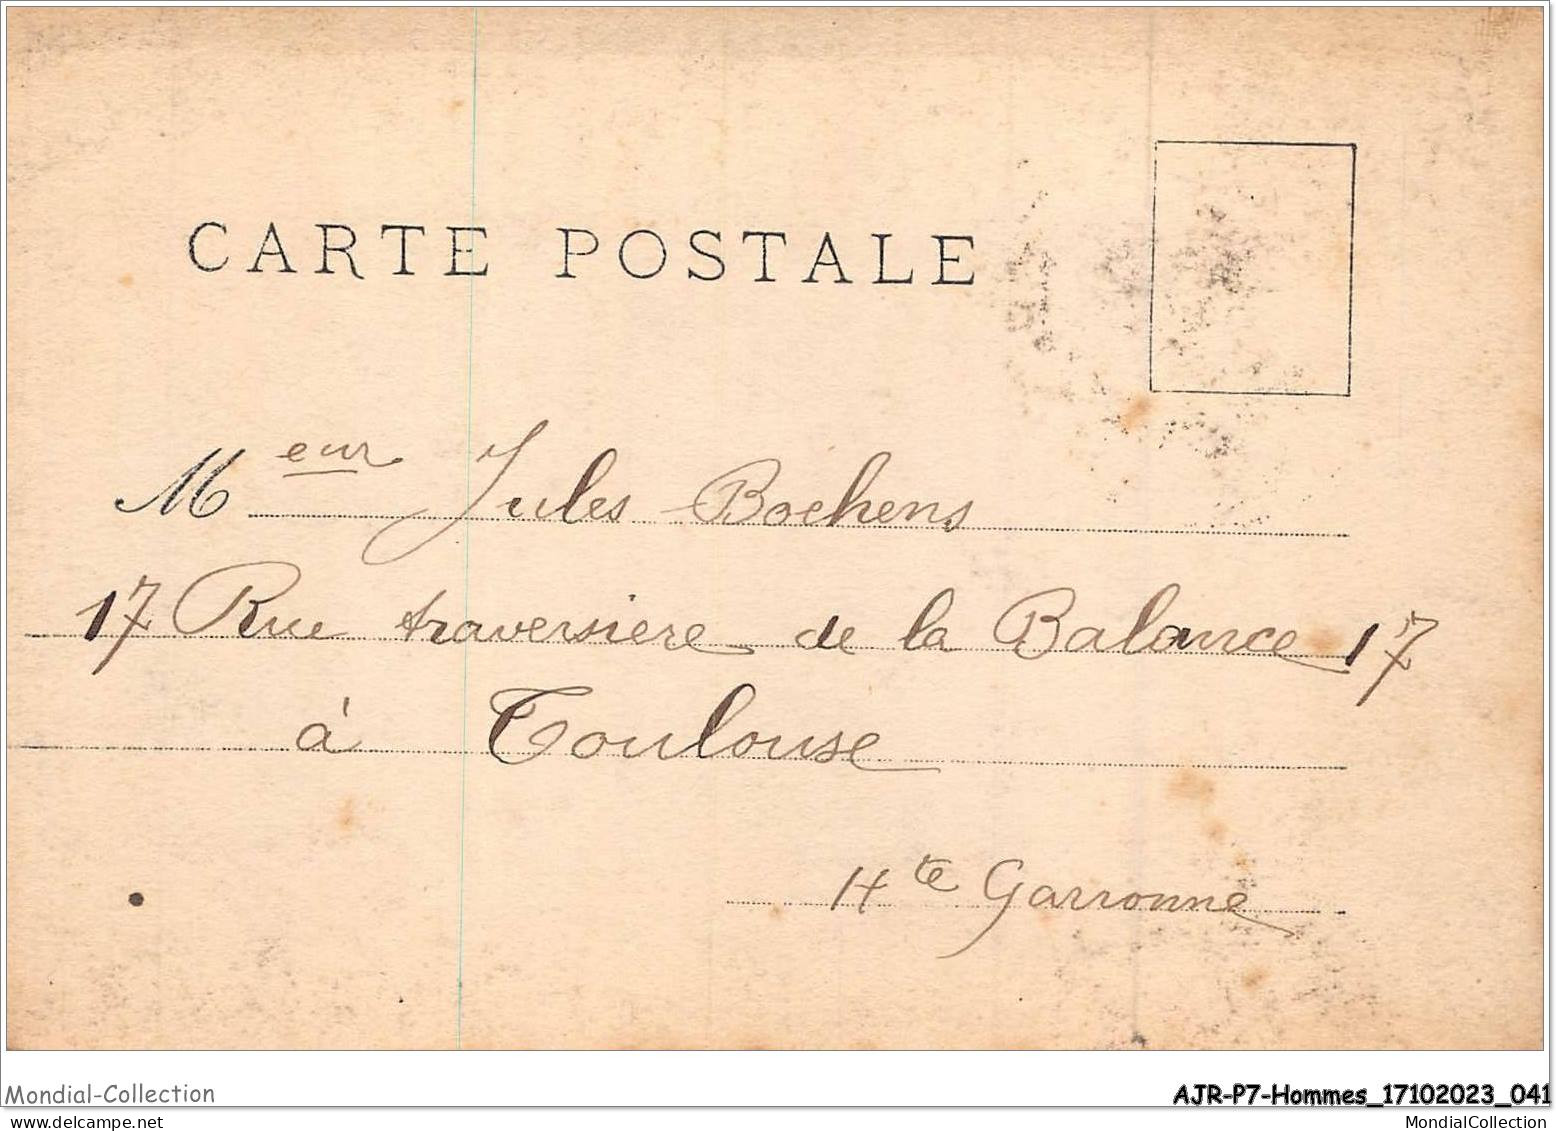 CARTE POSTALE
Meur Jules Bochens
17 Rue traversiere de la Balance 17
à Toulouse
Hte Garronne
Mondial-Collection
AJR-P7-Hommes_17102023_041
delcampe.net
MondialCollection